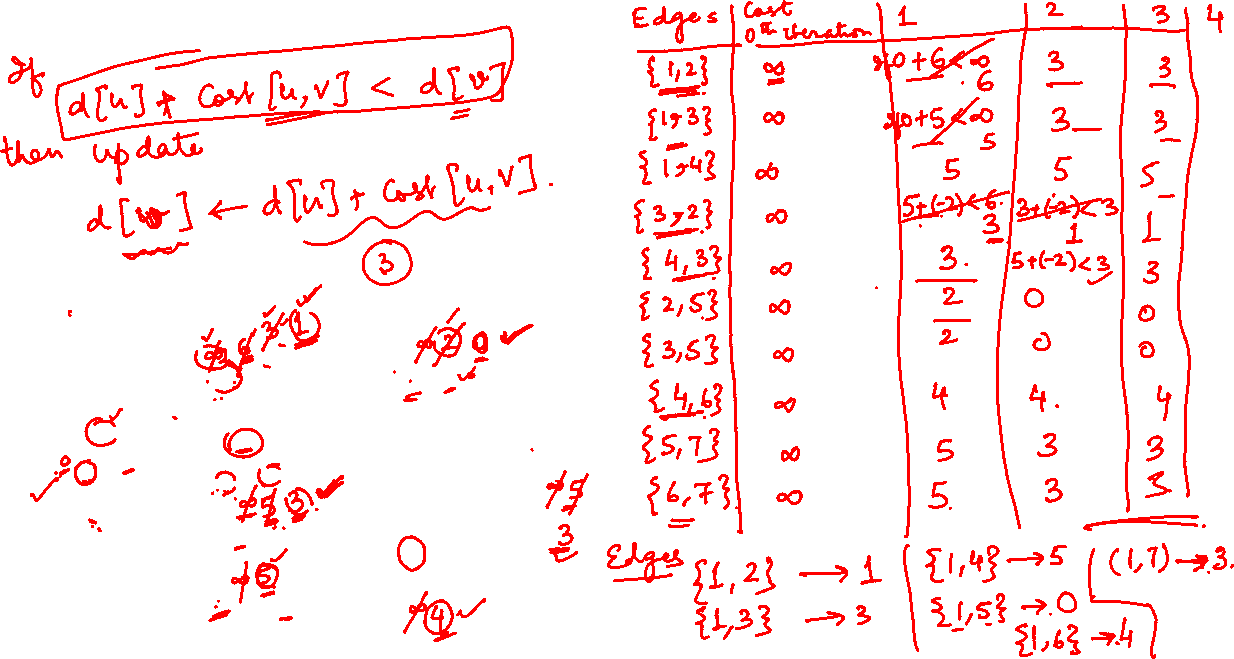 If
d[u] + Cost[u,v] < d[v]
then update
d[v] ← d[u] + Cost[u,v].
3
∞ 6 3 1
∞ 2 0
0
∞ 5 3
∞ 5
∞ 5
3
∞ 4
Edges Cost 0th iteration 1 2 3 4
{1,2} ∞ 0+6<∞ 6 3 3
{1,3} ∞ 0+5<∞ 5 3 3
{1,4} ∞ 5 5 5
{3,2} ∞ 5+(-2)<6 3 3+(-2)<3 1 1
{4,3} ∞ 3. 5+(-2)<3 3
{2,5} ∞ 2 0 0
{3,5} ∞ 2 0 0
{4,6} ∞ 4 4. 4
{5,7} ∞ 5 3 3
{6,7} ∞ 5. 3 3
Edges {1,2} → 1 {1,4} → 5 (1,7) → 3.
{1,3} → 3 {1,5} → 0
{1,6} → 4